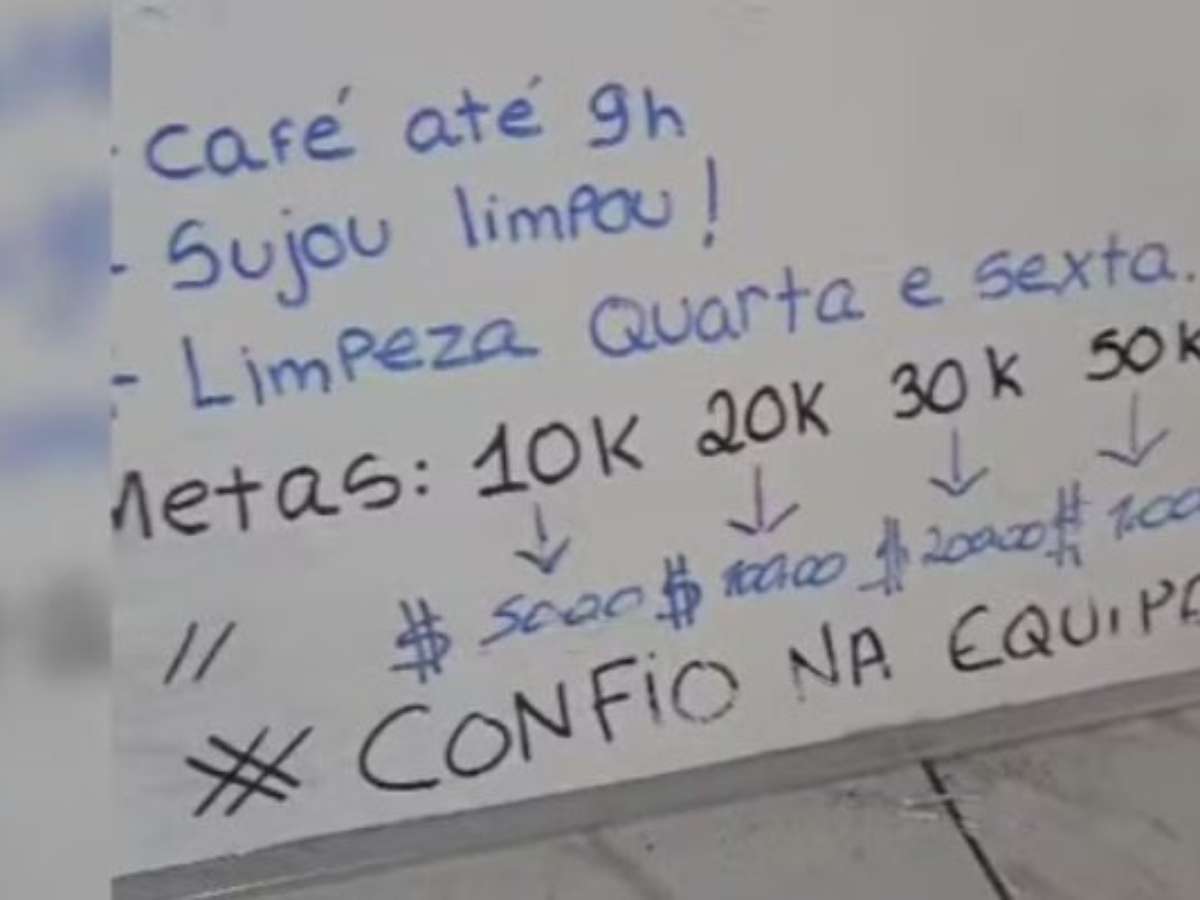 · Café até 9h
- Sujou limpou!
- Limpeza Quarta e sexta.
Metas: 10K 20K 30K 50K
// $ 50,00 $ 100,00 $ 200,00 $
CONFIO NA EQUIPE